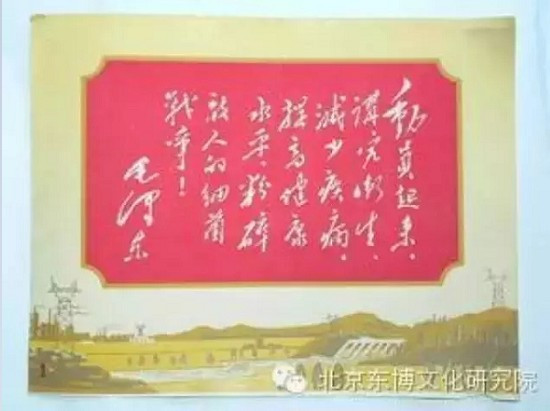 動員起来，
講究衛生，
減少疾病，
提高健康
水平，粉碎
敌人的细菌
战争！
毛泽东
北京东博文化研究院